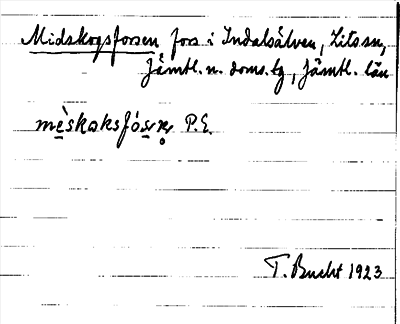 Midskogsforsen fors i Indalsälven, Lits sn,
Jämtl. n. doms. tg, Jämtl. län
P.E.
T. Bucht 1923